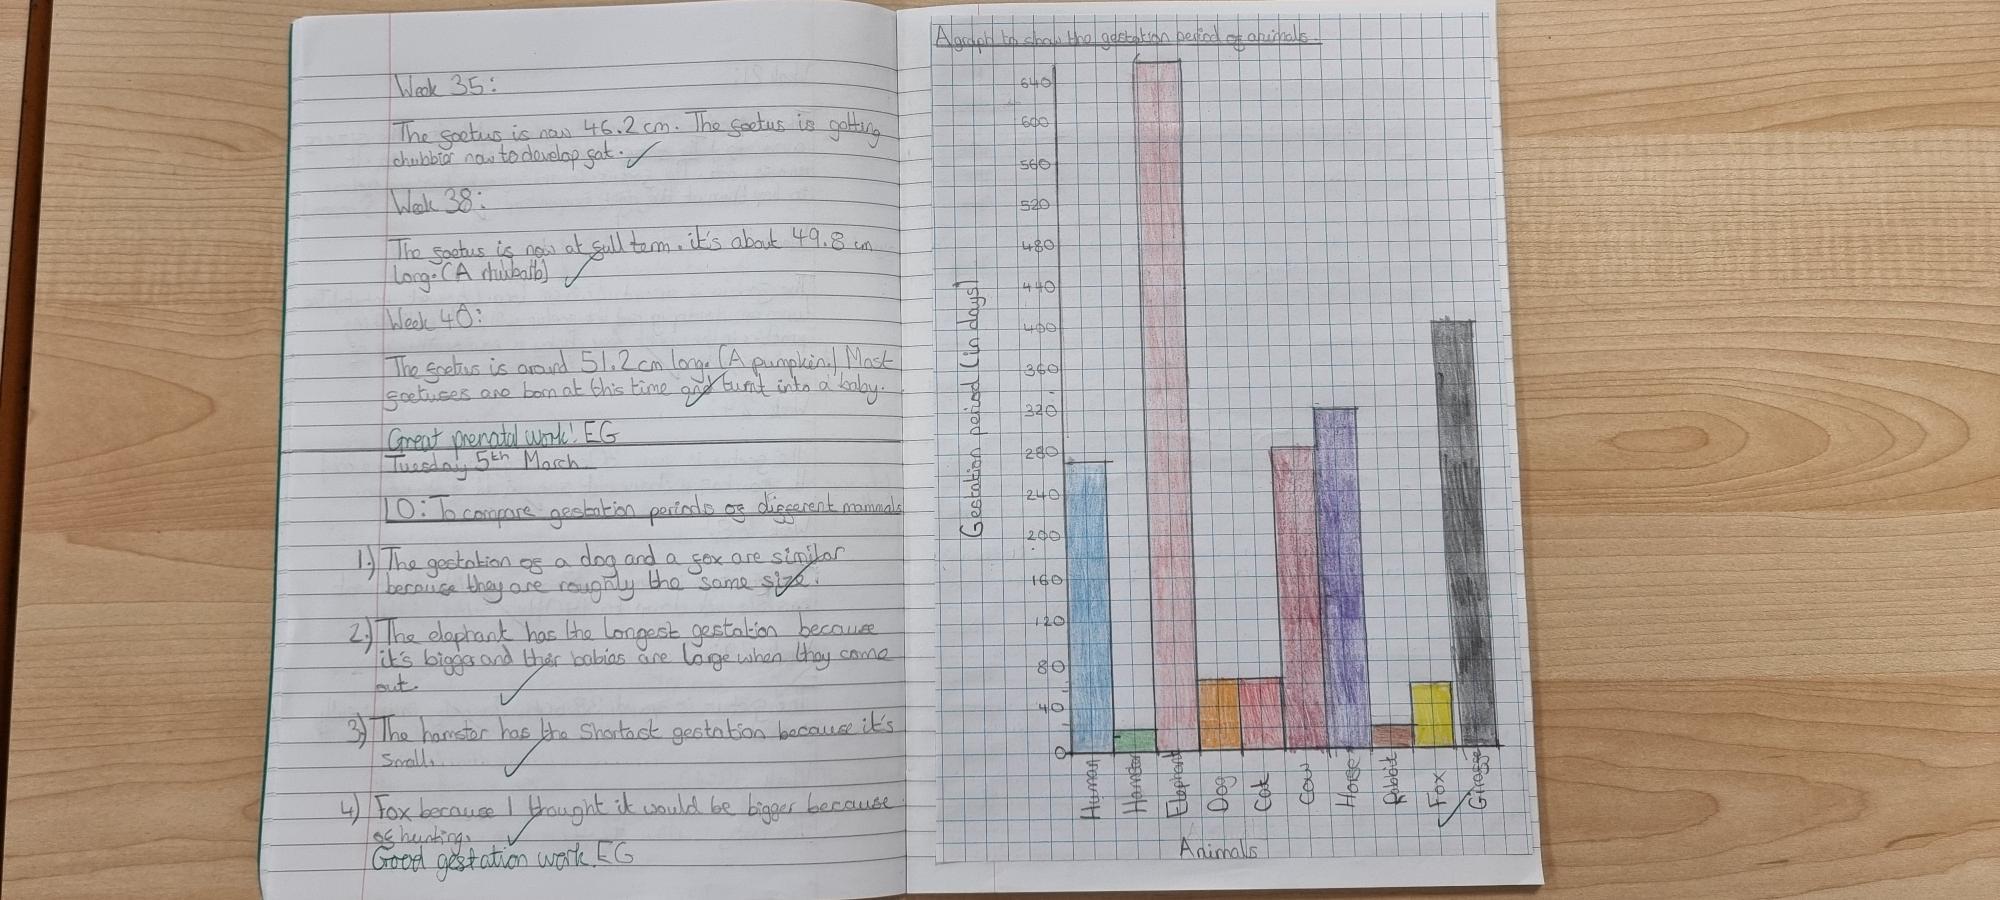 Week 35:
The foetus is now 46.2 cm. The foetus is getting
chubbier now to develop fat.
Week 38:
The foetus is now at full term. it's about 49.8 cm
long. (A rhubarb)
Week 40:
The foetus is around 51.2 cm long. (A pumpkin.) Most
foetuses are born at this time and turnt into a baby.
Great prenatal work! EG
Tuesday 5th March
LO: To compare gestation periods of different mammals
1.) The gestation of a dog and a fox are similar
because they are roughly the same size.
2.) The elephant has the longest gestation because
it's bigger and their babies are large when they come
out.
3.) The hamster has the shortest gestation because it's
small.
4.) Fox because I thought it would be bigger because
of hunting.
Good gestation work. EG
A graph to show the gestation period of animals.
Gestation period (in days)
640
600
560
520
480
440
400
360
320
280
240
200
160
120
80
40
0
Human
Hamster
Elephant
Dog
Cat
Cow
Horse
Rabbit
Fox
Giraffe
Animals